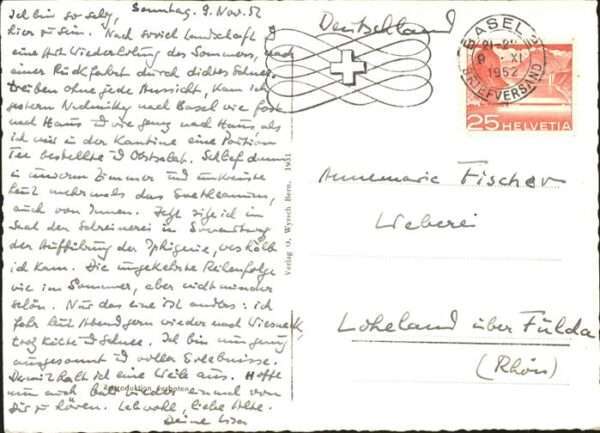 Sonntag. 9. Nov. 52
Ich bin so selig,
hier zu sein. Nach soviel Landschaft &
eine Art Wiederholung des Sommers, nach
einer Rückfahrt durch dichtes Schnee-
treiben ohne jede Aussicht, kam ich
gestern Nachmittag nach Basel wie fast
nach Haus & wie ganz nach Haus, als
ich mir in der Kantine eine Portion
Tee bestellte & Obstsalat. Schlief dann
in unserem Zimmer und umkreiste
heut mehrmals das Goetheanum,
auch von Innen. Jetzt sitze ich im
Saal der Schreinerei in Erwartung
der Aufführung der Iphigenie, weshalb
ich kam. Die umgekehrte Reihenfolge
wie im Sommer, aber nicht minder
schön. Nur das eine ist anders: ich
fahr heut Abend gern wieder nach Wiesneck,
trotz Kälte & Schnee. Ich bin nun genug
ausgesonnt & voller Erlebnisse.
Damit halt ich eine Weile aus. Hoffe
nun auch bald wieder einmal von
Dir zu hören. Lebwohl, liebe Alte.
Deine Lisa
Reproduktion verboten
Verlag O. Wyrsch Bern. 1951
Deutschland
BASEL 2
9. XI.
1952
BRIEFVERSAND
25 HELVETIA
Annemarie Fischer
Weberei
Loheland über Fulda
(Rhön)